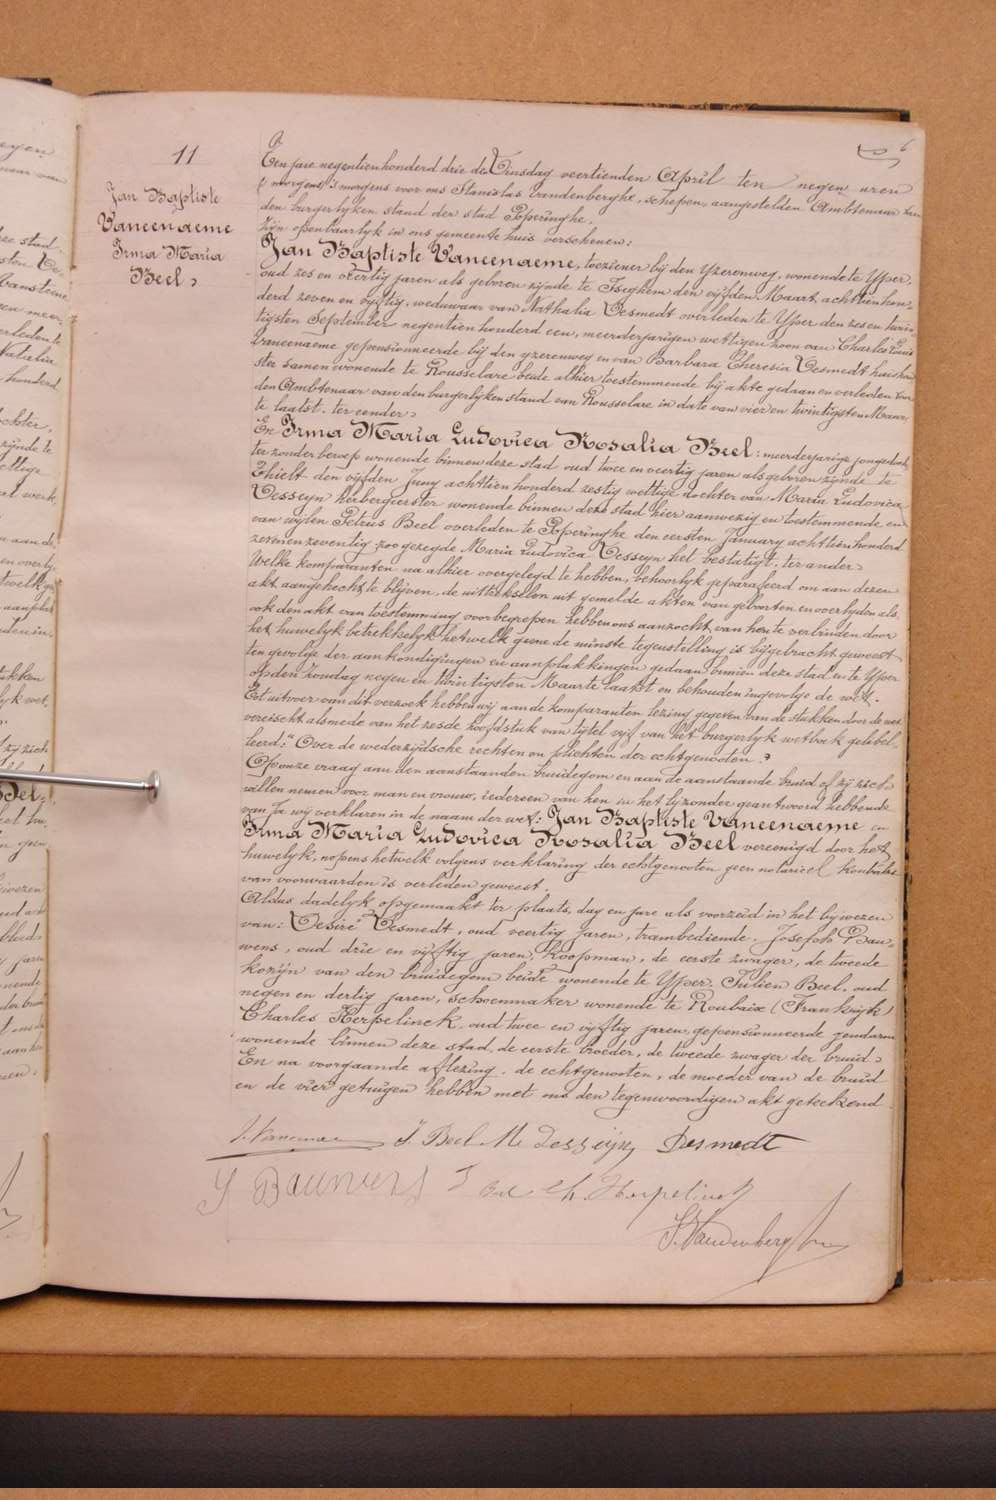 11
6
Jan Baptiste
Vaneenaeme
Irma Maria
Beel
Ten jare negentienhonderd drie den Dinsdag veertienden April ten negen uren
's morgens voor ons Stanislas Vandenberghe, schepen, aangestelden Ambtenaar van
den burgerlyken stand der stad Poperinghe.
zyn openbaarlyk in ons gemeente huis verschenen:
Jan Baptiste Vaneenaeme, toeziener bij den Yzerenweg, wonende te Yper,
oud zes en veertig jaren als geboren zijnde te Iseghem den vijfden Maart achttienhon-
derd zeven en vijftig, weduwaar van Nathalia Desmedt overleden te Yper den zes en twin-
tigsten September negentien honderd een, meerderjarigen wettigen zoon van Charles Louis
Vaneenaeme gepensionneerde bij den yzerenweg en van Barbara Theresia Desmedt huishou
ster samen wonende te Rousselare beide alhier toestemmende bij akte gedaan en verleden voor
den Ambtenaar van den burgerlyken stand van Rousselare in date van vier en twintigsten Maar
te laatst. ter eender
En Irma Maria Ludovica Rosalia Beel: meerderjarige jongedoch
ter zonder beroep wonende binnen deze stad oud twee en veertig jaren als geboren zijnde te
Thielt den vijfden Juny achttien honderd zestig wettige dochter van Maria Ludovica
Desseyn herbergierster wonende binnen deze stad hier aanwezig en toestemmende en
van wijlen Petrus Beel overleden te Poperinghe den eersten January achttien honderd
zeven en zeventig zoo gezegde Maria Ludovica Desseyn het bestatigt. ter ander
Welke komparanten na alhier overgelegd te hebben, behoorlyk geparafeerd om aan dezen
akt aangehecht te blijven, de uittreksels uit gemelde akten van geboorten en overlyden als
ook den akt van toestemming voorbegrepen hebben ons aanzocht van hen te verbinden door
het huwelyk betrekkelyk hetwelk geene de minste tegenstelling is bijgebracht geweest
ten gevolge der aankondigingen en aanplakkingen gedaan binnen deze stad en te Yper
op den Zondag negen en twintigsten Maarte laatst en behouden ingevolge de wet.
Tot uitvoer van dit verzoek hebben wij aan de komparanten lezing gegeven van de stukken door de wet
vereischt alsmede van het zesde hoofdstuk van tytel vijf van het burgerlyk wetboek gelibel-
leerd: "Over de wederzijdsche rechten en plichten der echtgenooten."
Op onze vraag aan den aanstaanden bruidegom en aan de aanstaande bruid of zij zich
willen nemen voor man en vrouw, iedereen van hen in het bijzonder geantwoord hebbende
van Ja wij verklaren in de naam der wet: Jan Baptiste Vaneenaeme en
Irma Maria Ludovica Rosalia Beel vereenigd door het
huwelyk, nopens hetwelk volgens verklaring der echtgenooten geen notarieel kontrakt
van voorwaarden is verleden geweest.
Aldus dadelyk opgemaakt ter plaats, dag en jare als voorzeid in het bywezen
van: Desiré Desmedt, oud veertig jaren, trambediende. Joseph Bau-
wens, oud drie en vijftig jaren, koopman, de eerste zwager, de tweede
kozijn van den bruidegom beide wonende te Yper. Julien Beel, oud
negen en dertig jaren, schoenmaker wonende te Roubaix (Frankrijk)
Charles Herpelinck, oud twee en vijftig jaren gepensionneerde gendarm
wonende binnen deze stad, de eerste broeder, de tweede zwager der bruid
En na voorgaande aflezing de echtgenooten, de moeder van de bruid
en de vier getuigen hebben met ons den tegenwoordigen akt geteekend
J. Beel M. Desseijn Desmedt
J Bauwens J Beel Ch. Herpelinck
S. Vandenberghe